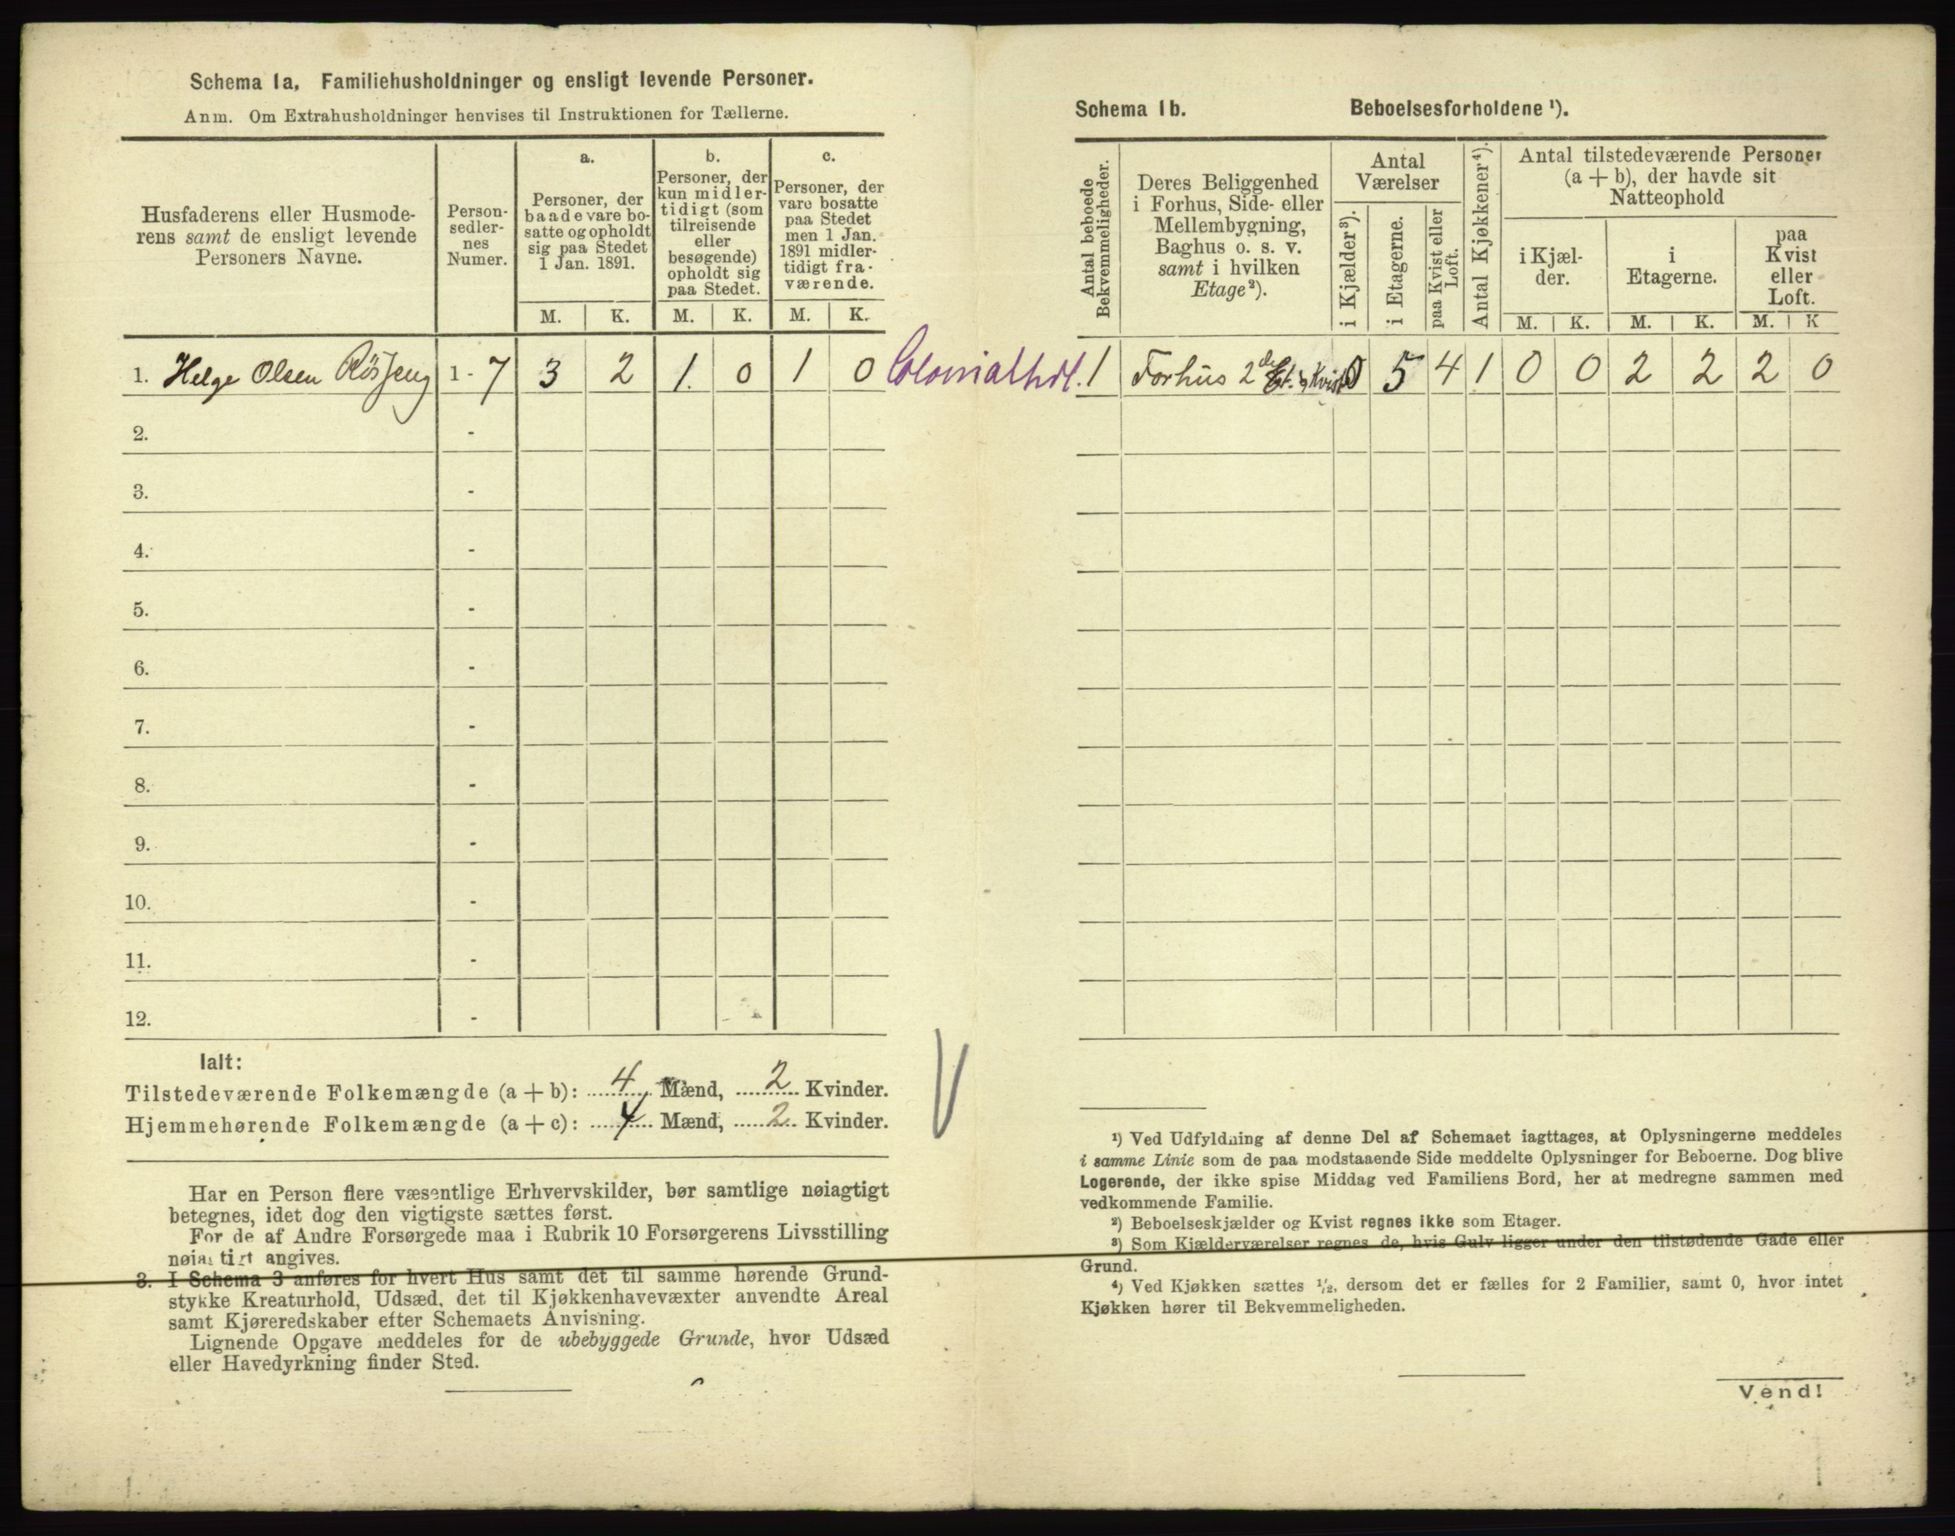 Schema 1a, Familiehusholdninger og ensligt levende Personer.
Anm. Om Extrahusholdninger henvises til Instruktionen for Tællerne.
Husfaderens eller Husmode-
rens samt de ensligt levende
Personers Navne.
Person-
sedler-
nes
Numer.
a.
Personer, der
baade vare bo-
satte og opholdt
sig paa Stedet
1 Jan. 1891.
b.
Personer, der
kun midler-
tidigt (som
tilreisende
eller
besøgende)
opholdt sig
paa Stedet.
c.
Personer, der
vare bosatte
paa Stedet
men 1 Jan.
1891 midler-
tidigt fra-
værende.
M. K. M. K. M. K.
1. Helge Olsen Rösjeng 1 - 7 3 2 1 0 1 0 Colonialhdl.
2. -
3. -
4. -
5. -
6. -
7. -
8. -
9. -
10. -
11. -
12. -
Ialt:
Tilstedeværende Folkemængde (a + b): 4 Mænd, 2 Kvinder.
Hjemmehørende Folkemængde (a + c): 4 Mænd, 2 Kvinder.
Har en Person flere væsentlige Erhvervskilder, bør samtlige nøiagtigt
betegnes, idet dog den vigtigste sættes først.
For de af Andre Forsørgede maa i Rubrik 10 Forsørgerens Livsstilling
nøiagtigt angives.
3. I Schema 3 anføres for hvert Hus samt det til samme hørende Grund-
stykke Kreaturhold, Udsæd, det til Kjøkkenhavevæxter anvendte Areal
samt Kjøreredskaber efter Schemaets Anvisning.
Lignende Opgave meddeles for de ubebyggede Grunde, hvor Udsæd
eller Havedyrkning finder Sted.
Schema 1b. Beboelsesforholdene ¹).
Antal beboede
Bekvemmeligheder.
Deres Beliggenhed
i Forhus, Side- eller
Mellembygning,
Baghus o. s. v.
samt i hvilken
Etage²).
Antal
Værelser
i Kjælder³).
i Etagerne.
paa Kvist eller
Loft.
Antal Kjøkkener⁴).
Antal tilstedeværende Personer
(a + b), der havde sit
Natteophold
i Kjæl-
der.
i
Etagerne.
paa
Kvist
eller
Loft.
M. K. M. K. M. K
1 Forhus 2de Et. og Kvist 0 5 4 1 0 0 2 2 2 0
¹) Ved Udfyldning af denne Del af Schemaet iagttages, at Oplysningerne meddeles
i samme Linie som de paa modstaaende Side meddelte Oplysninger for Beboerne. Dog blive
Logerende, der ikke spise Middag ved Familiens Bord, her at medregne sammen med
vedkommende Familie.
²) Beboelseskjælder og Kvist regnes ikke som Etager.
³) Som Kjælderværelser regnes de, hvis Gulv ligger under den tilstødende Gade eller
Grund.
⁴) Ved Kjøkken sættes ½, dersom det er fælles for 2 Familier, samt 0, hvor intet
Kjøkken hører til Bekvemmeligheden.
Vend!